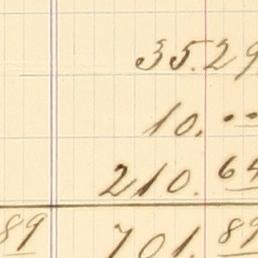 35.29
10. ..
210. 64
89 701. 89